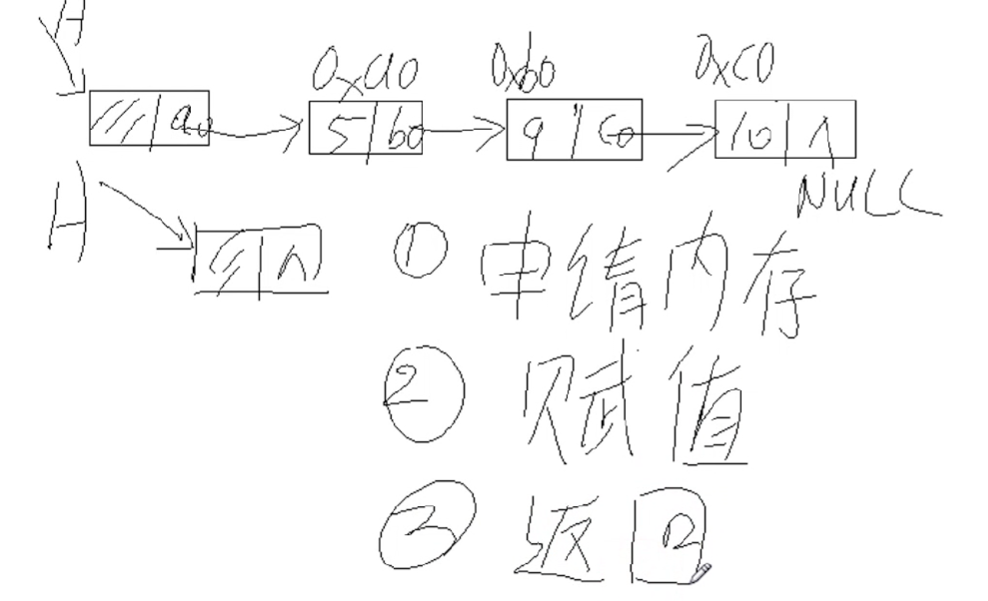 H
0xa0 0xb0 0xc0
a0 5 b0 9 c0 10 ∧
NULL
H ∧
① 申请内存
② 赋值
③ 返回